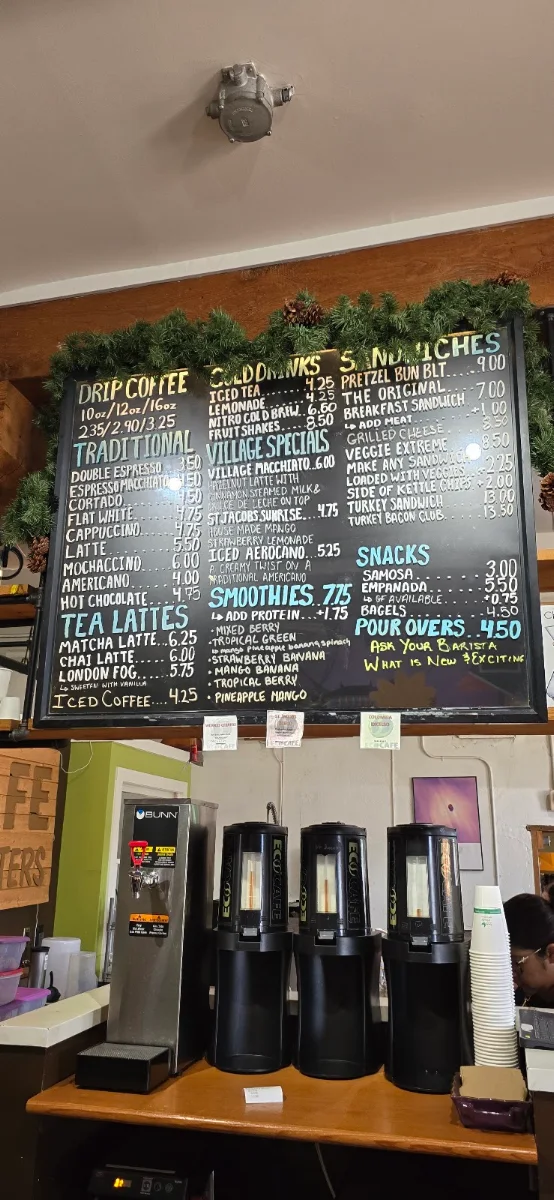 DRIP COFFEE
10oz/12oz/16oz
2.35/2.90/3.25
TRADITIONAL
DOUBLE ESPRESSO 3.50
ESPRESSO MACCHIATO 4.50
CORTADO 4.50
FLAT WHITE 4.75
CAPPUCCINO 4.75
LATTE 5.50
MOCHACCINO 6.00
AMERICANO 4.00
HOT CHOCOLATE 4.75
TEA LATTES
MATCHA LATTE 6.25
CHAI LATTE 6.00
LONDON FOG 5.75
↳ SWEETEN WITH VANILLA
ICED COFFEE 4.25
COLD DRINKS
ICED TEA 4.25
LEMONADE 4.25
NITRO COLD BREW 6.50
FRUIT SHAKES 8.50
VILLAGE SPECIALS
VILLAGE MACCHIATO 6.00
HAZELNUT LATTE WITH
CINNAMON STEAMED MILK &
DULCE DE LECHE ON TOP
ST JACOBS SUNRISE 4.75
HOUSE MADE MANGO
STRAWBERRY LEMONADE
ICED AEROCANO 5.25
A CREAMY TWIST ON A
TRADITIONAL AMERICANO
SMOOTHIES 7.75
↳ ADD PROTEIN +1.75
• MIXED BERRY
• TROPICAL GREEN
↳ mango pineapple banana spinach
• STRAWBERRY BANANA
• MANGO BANANA
• TROPICAL BERRY
• PINEAPPLE MANGO
SANDWICHES
PRETZEL BUN BLT 9.00
THE ORIGINAL 7.00
BREAKFAST SANDWICH
↳ ADD MEAT +1.00
GRILLED CHEESE 8.50
VEGGIE EXTREME 8.50
MAKE ANY SANDWICH
LOADED WITH VEGGIES +2.25
SIDE OF KETTLE CHIPS +2.00
TURKEY SANDWICH 13.00
TURKEY BACON CLUB 13.50
SNACKS
SAMOSA 3.00
EMPANADA 5.50
↳ GF AVAILABLE +0.75
BAGELS 4.50
POUR OVERS 4.50
ASK YOUR BARISTA
WHAT IS NEW & EXCITING
BUNN